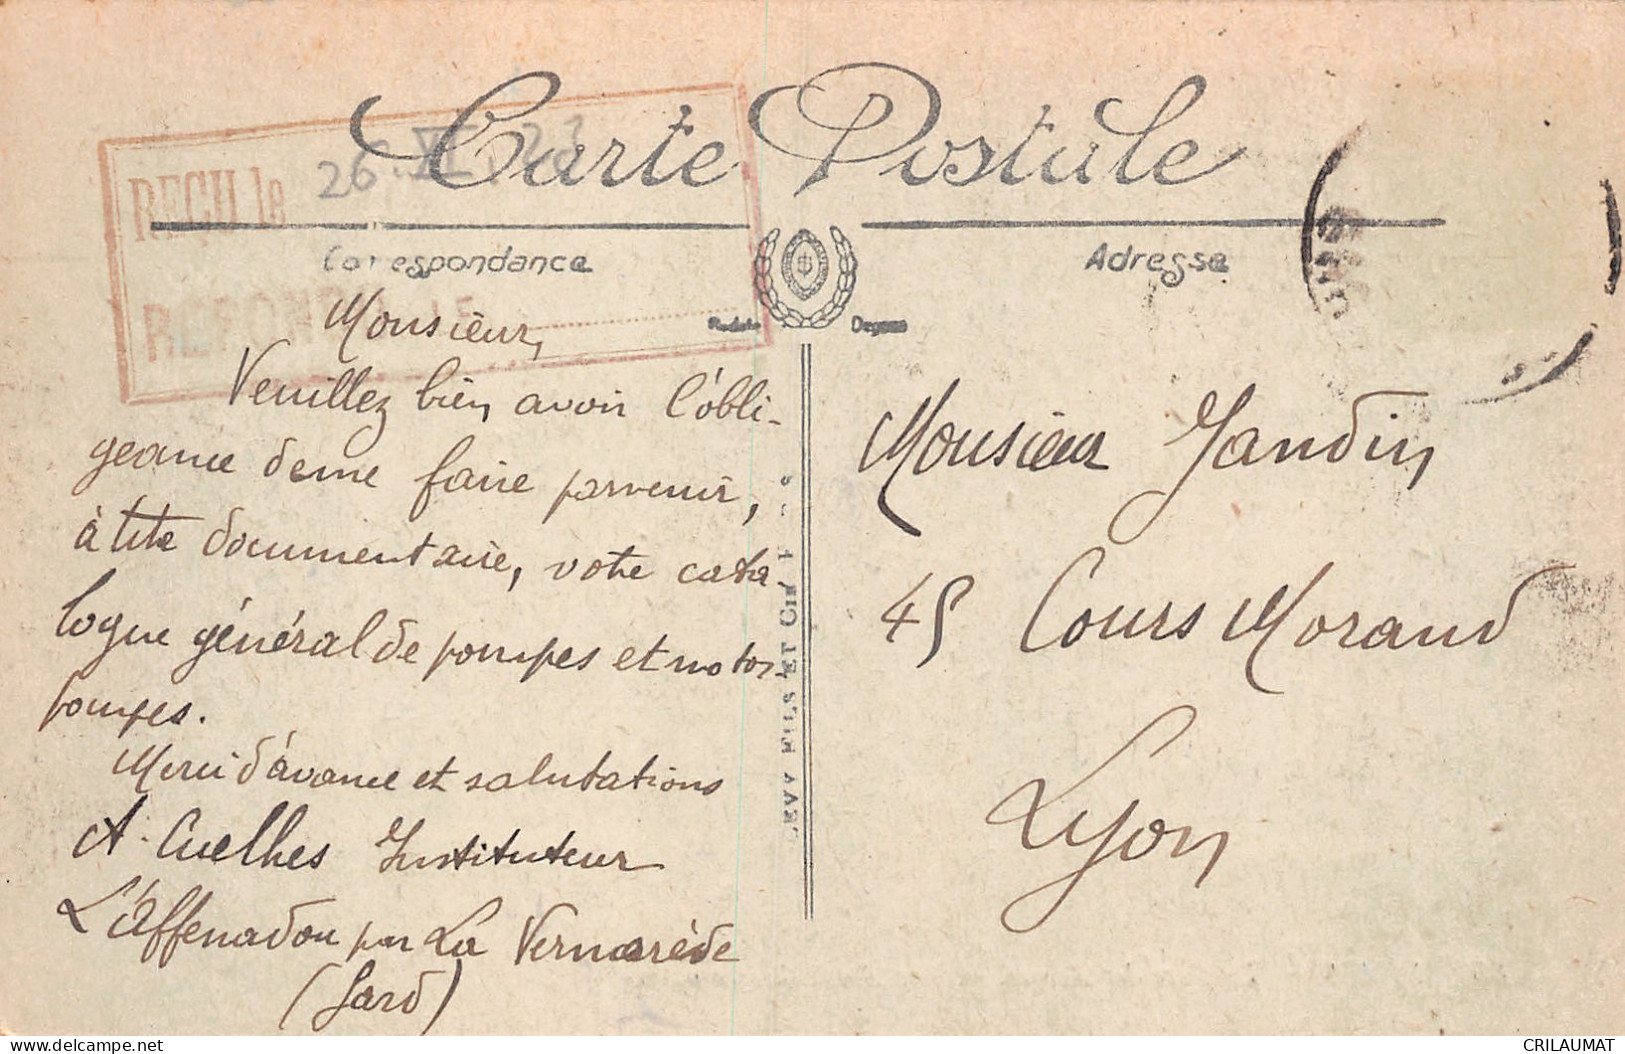 Carte Postale
REÇU le 26. VI. 23
RÉPONDU LE
Correspondance
Adresse
Monsieur,
Veuillez bien avoir l'obli-
geance de me faire parvenir,
à titre documentaire, votre cata-
logue général de pompes et moto
pompes.
Merci d'avance et salutations
A. Cuelhes Instituteur
L'Affenadou par La Vernarède
(Gard)
LEVY FILS ET CIE
Monsieur Jandin
45 Cours Morand
Lyon
CRILAUMAT